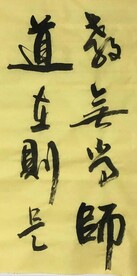 教無常師
道在則是